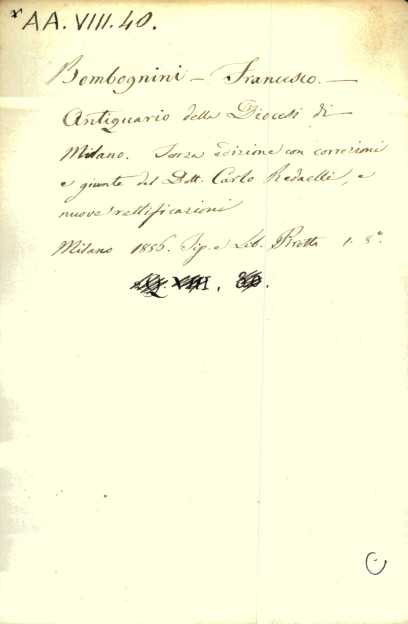 AA. VIII. 40.
Bombognini - Francesco. -
Antiquario della Diocesi di
Milano. Terza edizione con correzioni
e giunte del Dott. Carlo Redaelli, e
nuove rettificazioni
Milano 1856. Tip. e Lib. Pirotta 1. 8°.